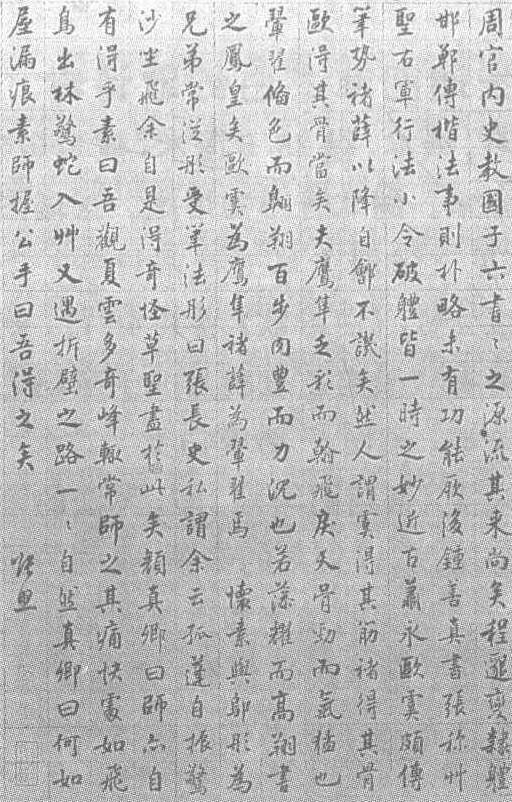 周官内史教國子六書〻之源流其来尚矣程邈變隸體
邯鄲傳楷法事則朴略未有功能厥後鍾善真書張称草
聖右軍行法小令破體皆一時之妙近古蕭永歐虞頗傳
筆勢褚薛以降自鄶不譏矣然人謂虞得其筋褚得其骨
歐得其骨當矣夫鷹隼乏彩而翰飛戾天骨勁而氣猛也
翬翟俻色而翱翔百步肉豊而力沉也若藻耀而高翔書
之鳳皇矣歐虞為鷹隼褚薛為翬翟焉 懷素與鄔彤為
兄弟常從彤受筆法彤曰張長史私謂余云孤蓬自振驚
沙坐飛余自是得奇怪草聖盡於此矣顔真卿曰師亦自
有得乎素曰吾觀夏雲多奇峰輙常師之其痛快處如飛
鳥出林驚蛇入艸又遇拆壁之路一〻自然真卿曰何如
屋漏痕素師握公手曰吾得之矣